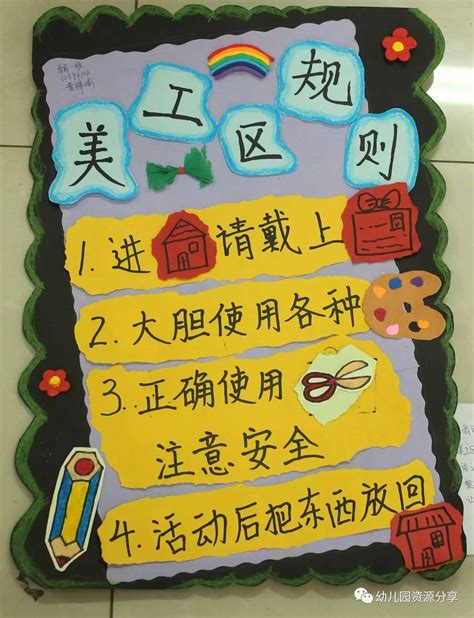 美工区规则
1.进请戴上
2.大胆使用各种
3.正确使用
注意安全
4.活动后把东西放回
幼儿园资源分享